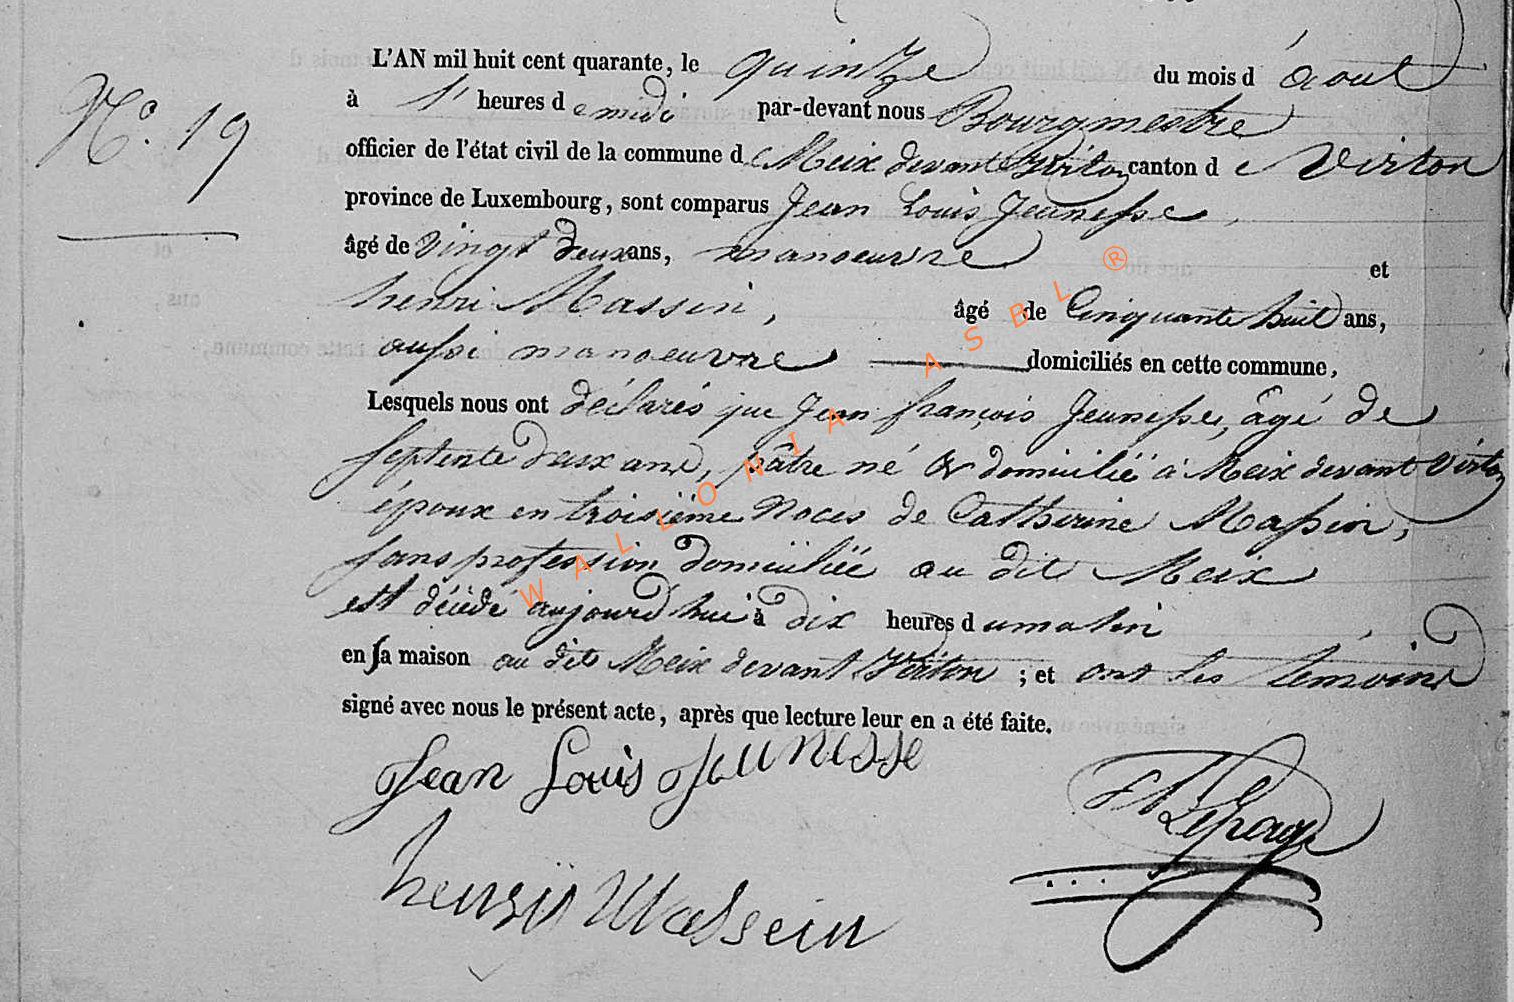 L'AN mil huit cent quarante, le quinze du mois d'août
N.° 19
à 1' heures de midi par-devant nous Bourgmestre
officier de l'état civil de la commune de Meix devant Virton canton de Virton
province de Luxembourg, sont comparus Jean Louis Jeunesse,
âgé de vingt deux ans, manoeuvre et
henri Massin, âgé de Cinquante huit ans,
aussi manoeuvre domiciliés en cette commune,
Lesquels nous ont déclarés que Jean françois Jeunesse, âgé de
septente deux ans, pâtre né & domicilié à Meix devant Virton
époux en troisième Noces de Catherine Massin,
sans profession domiciliée au dit Meix
est décédé aujourd'hui à dix heures du matin
en sa maison au dit Meix devant Virton ; et ont les témoins
signé avec nous le présent acte, après que lecture leur en a été faite.
Jean Louis Jeunesse
henry Massein
WALLONIA ASBL ®